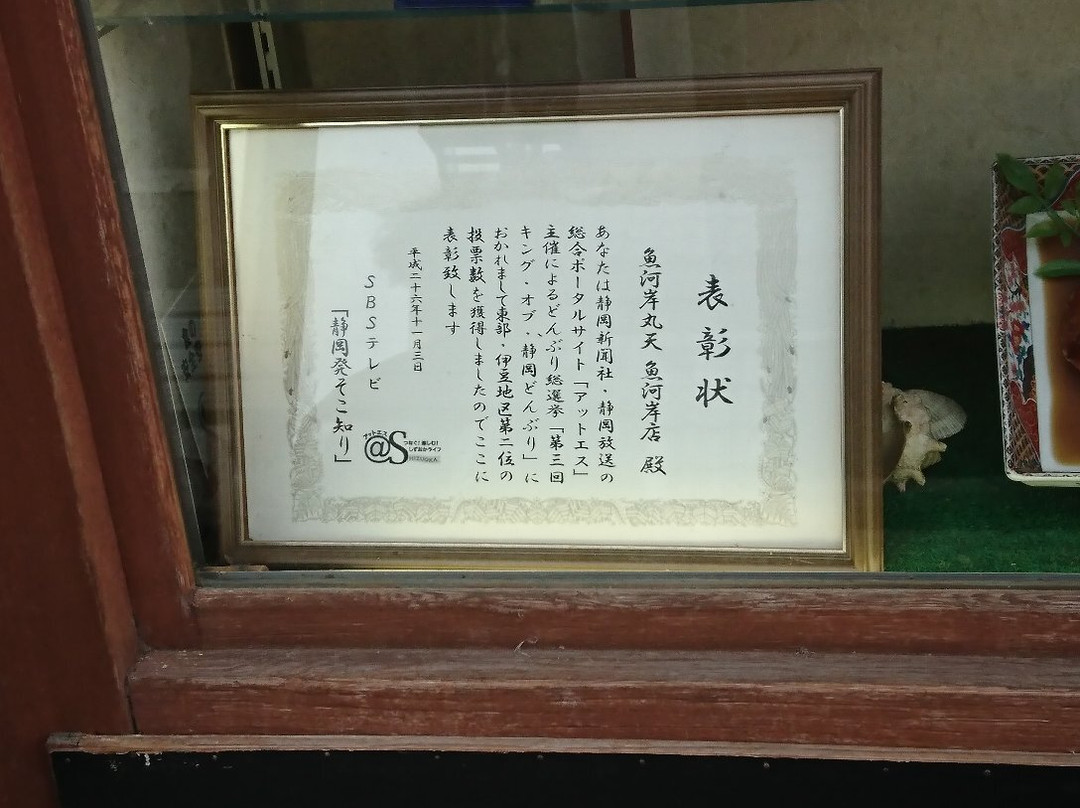 表彰状
魚河岸丸天 魚河岸店 殿
あなたは静岡新聞社・静岡放送の
総合ポータルサイト「アットエス」
主催によるどんぶり総選挙「第三回
キング・オブ・静岡どんぶり」に
おかれまして東部・伊豆地区第二位の
投票数を獲得しましたのでここに
表彰致します
平成二十六年十一月三日
SBSテレビ
「静岡発そこ知り」
アットエス
@S
つなぐ!楽しむ!
しずおかライフ
SHIZUOKA